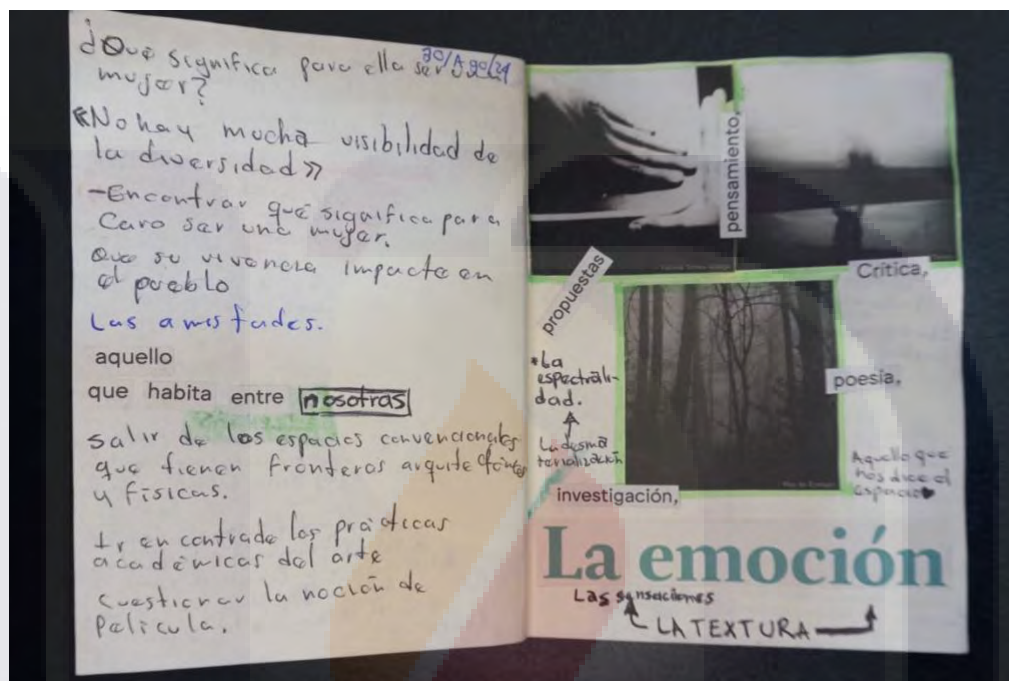 ¿Qué significa para ella ser
30/Ago/21
mujer?
«No hay mucha visibilidad de
la diversidad»
-Encontrar qué significa para
Caro ser una mujer.
Que su vivencia impacte en
el pueblo
Las amistades.
aquello
que habita entre nosotras
salir de los espacios convencionales
que tienen fronteras
y físicas.
Ir en contra de las prácticas
académicas del arte
Cuestionar la noción de
Película.
pensamiento,
propuestas
Crítica,
•La
espectrali-
dad.
La desma
terialización
poesía,
Aquello que
nos dice el
espacio
investigación,
La emoción
Las sensaciones
LA TEXTURA